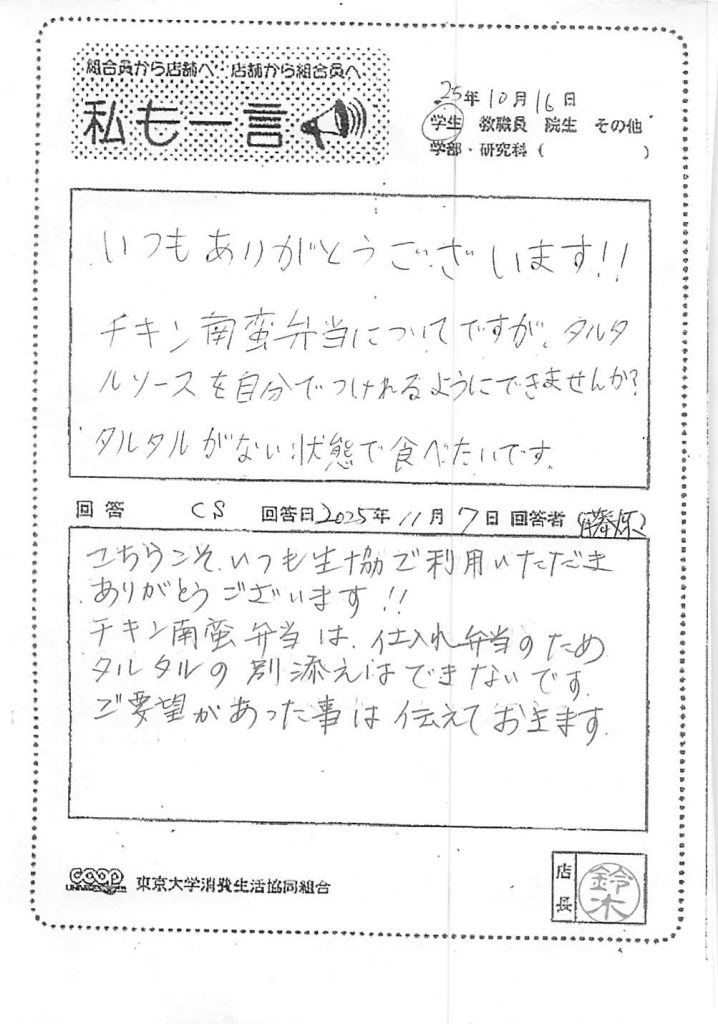 組合員から店舗へ 店舗から組合員へ
私も一言
25年10月16日
学生 教職員 院生 その他
学部・研究科( )
いつもありがとうございます!!
チキン南蛮弁当についてですが、タルタ
ルソースを自分でつけれるようにできませんか?
タルタルがない状態で食べたいです。
回答 CS 回答日2025年11月7日 回答者(藤原)
こちらこそ、いつも生協で利用いただき
ありがとうございます!!
チキン南蛮弁当は、仕入れ弁当のため
タルタルの別添えはできないです。
ご要望があった事は伝えておきます。
coop 東京大学消費生活協同組合
店長 鈴木